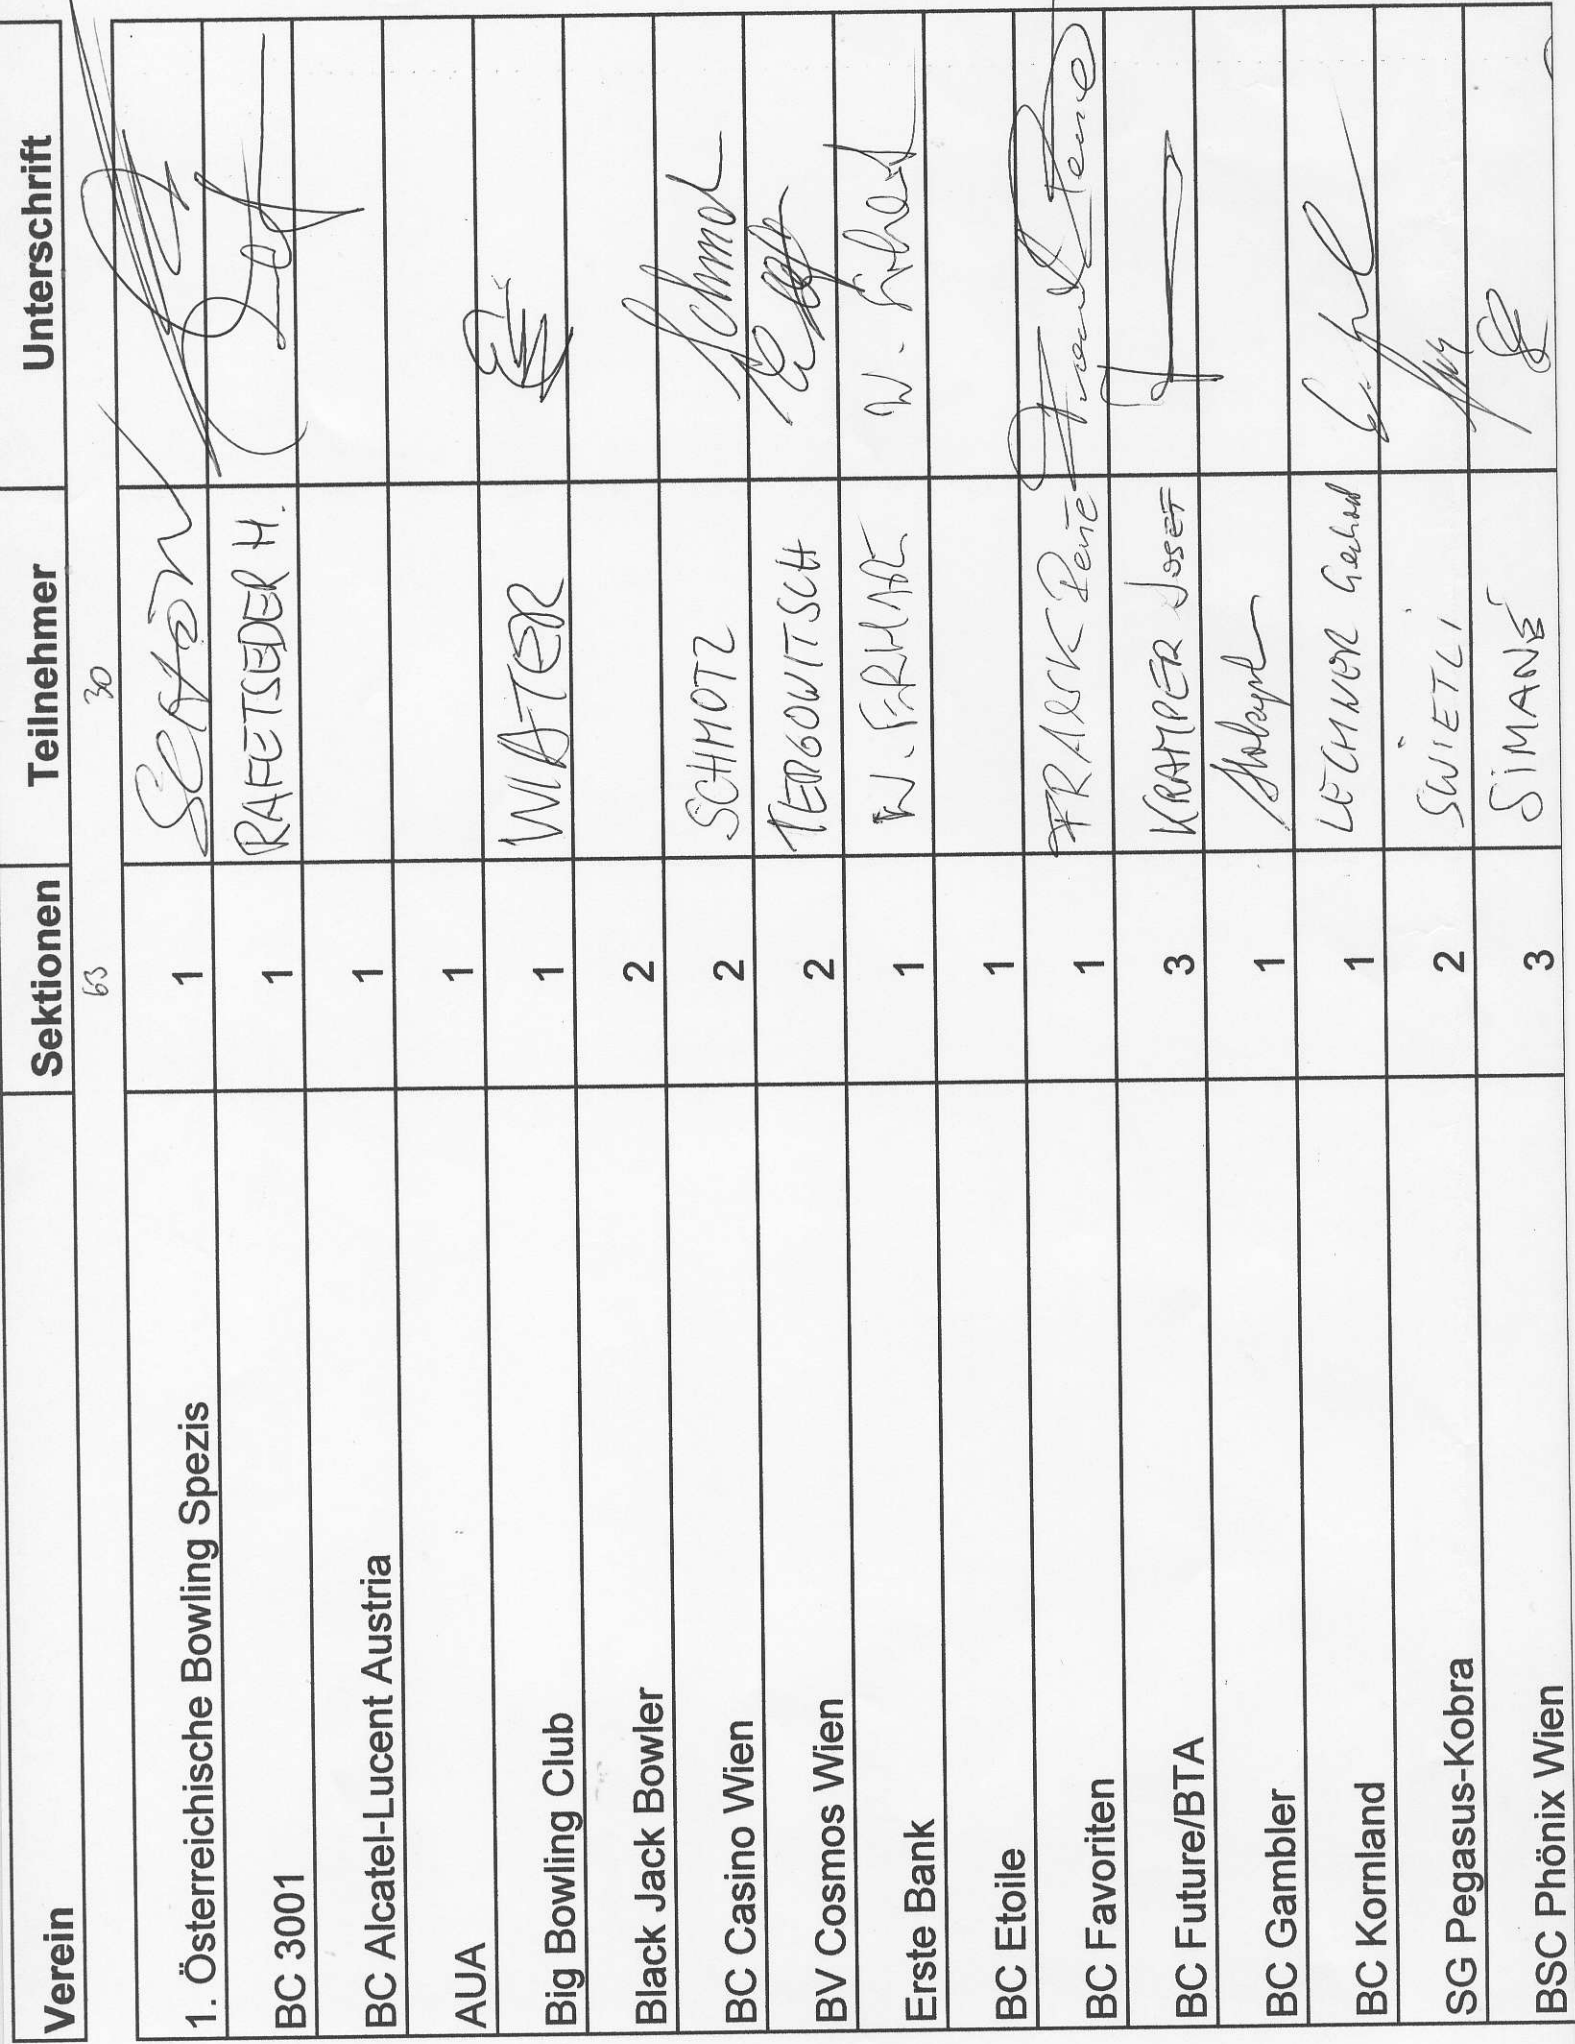 Verein Sektionen Teilnehmer Unterschrift
63 30
1. Österreichische Bowling Spezis 1 SCHÖN
BC 3001 1 RAFETSEDER H.
BC Alcatel-Lucent Austria 1
AUA 1
Big Bowling Club 1 WIATER
Black Jack Bowler 2
BC Casino Wien 2 SCHMOTZ
BV Cosmos Wien 2 TERGOWITSCH
Erste Bank 1 W.
BC Etoile 1
BC Favoriten 1 FRANK René Frank René
BC Future/BTA 3 KRAMPER JOSEF
BC Gambler 1
BC Kornland 1 LECHNER Gerhard
SG Pegasus-Kobra 2 SWIETLI
BSC Phönix Wien 3